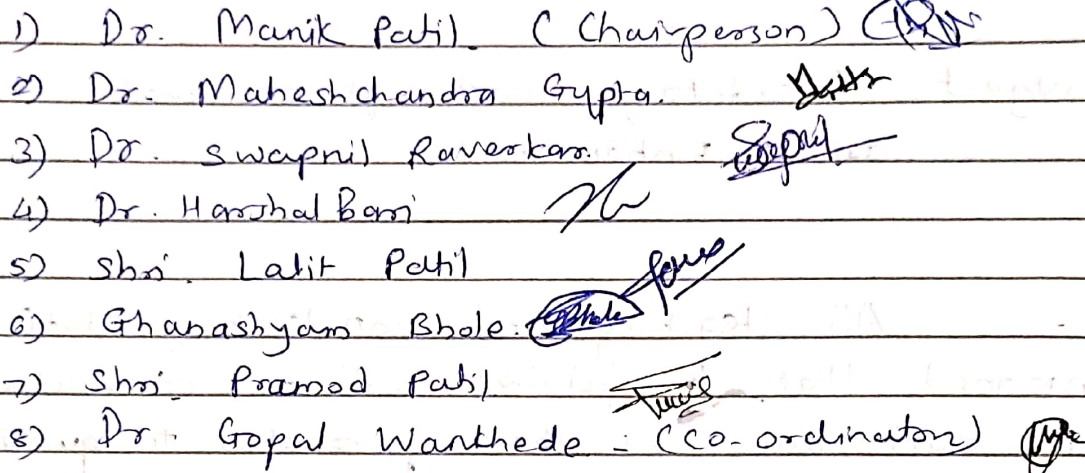 1) Dr. Manik Patil. (Chairperson)
2) Dr. Maheshchandra Gupta.
3) Dr. Swapnil Raverkar.
4) Dr. Harshal Bari
5) Shri. Lalit Patil
6) Ghanashyam Bhole. Bhole
7) Shri. Pramod Patil
8) Dr. Gopal Wankhede - (Co-ordinator)